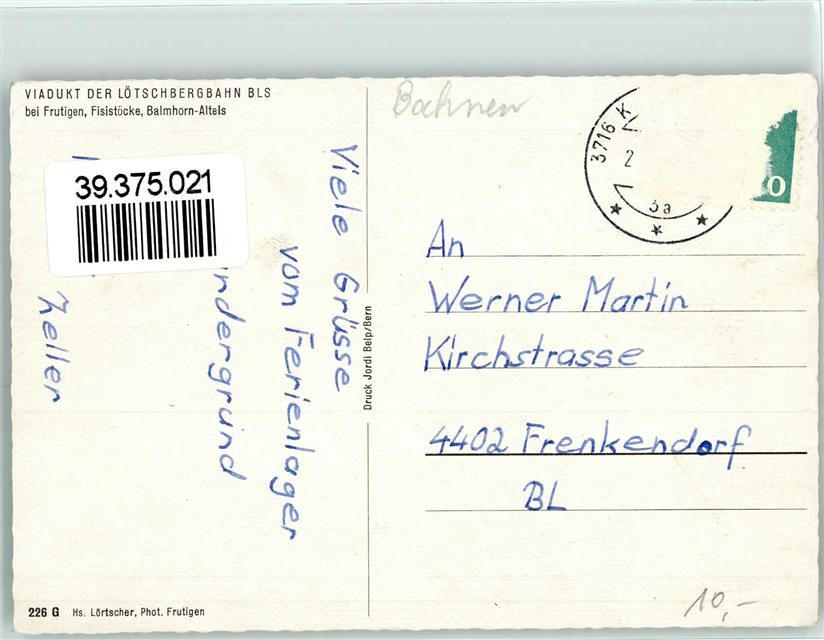 VIADUKT DER LÖTSCHBERGBAHN BLS
bei Frutigen, Fisistöcke, Balmhorn-Altels
39.375.021
Viele Grüsse
vom Ferienlager
ndergrund
Zeller
226 G Hs. Lörtscher, Phot. Frutigen
Druck Jordi Belp/Bern
Bahnen
3716 K
2
3a
0
An
Werner Martin
Kirchstrasse
4402 Frenkendorf
BL
10,-